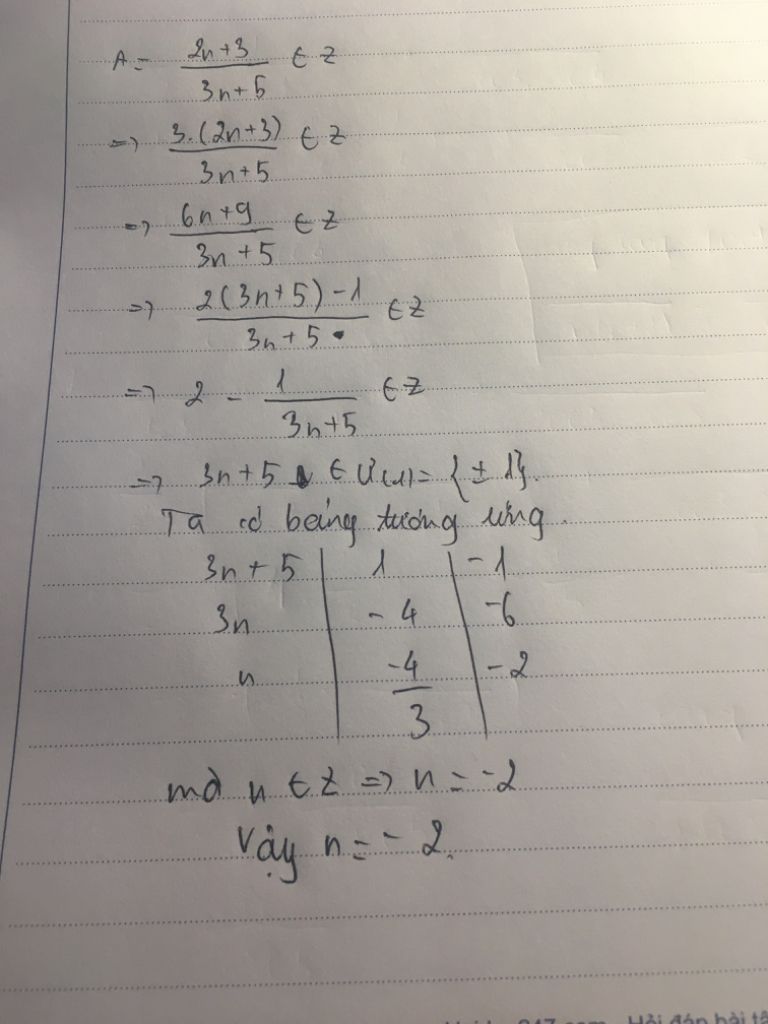 A = (2n+3)/(3n+5) ∈ Z
=> (3.(2n+3))/(3n+5) ∈ Z
=> (6n+9)/(3n+5) ∈ Z
=> (2(3n+5)-1)/(3n+5) ∈ Z
=> 2 - 1/(3n+5) ∈ Z
=> 3n+5 ∈ Ư(1) = {± 1}.
Ta có bảng tương ứng.
3n+5 | 1 | -1
3n | -4 | -6
n | -4/3 | -2
mà n ∈ Z => n = -2
Vậy n = -2.
247.com - Hỏi đáp bài tậ